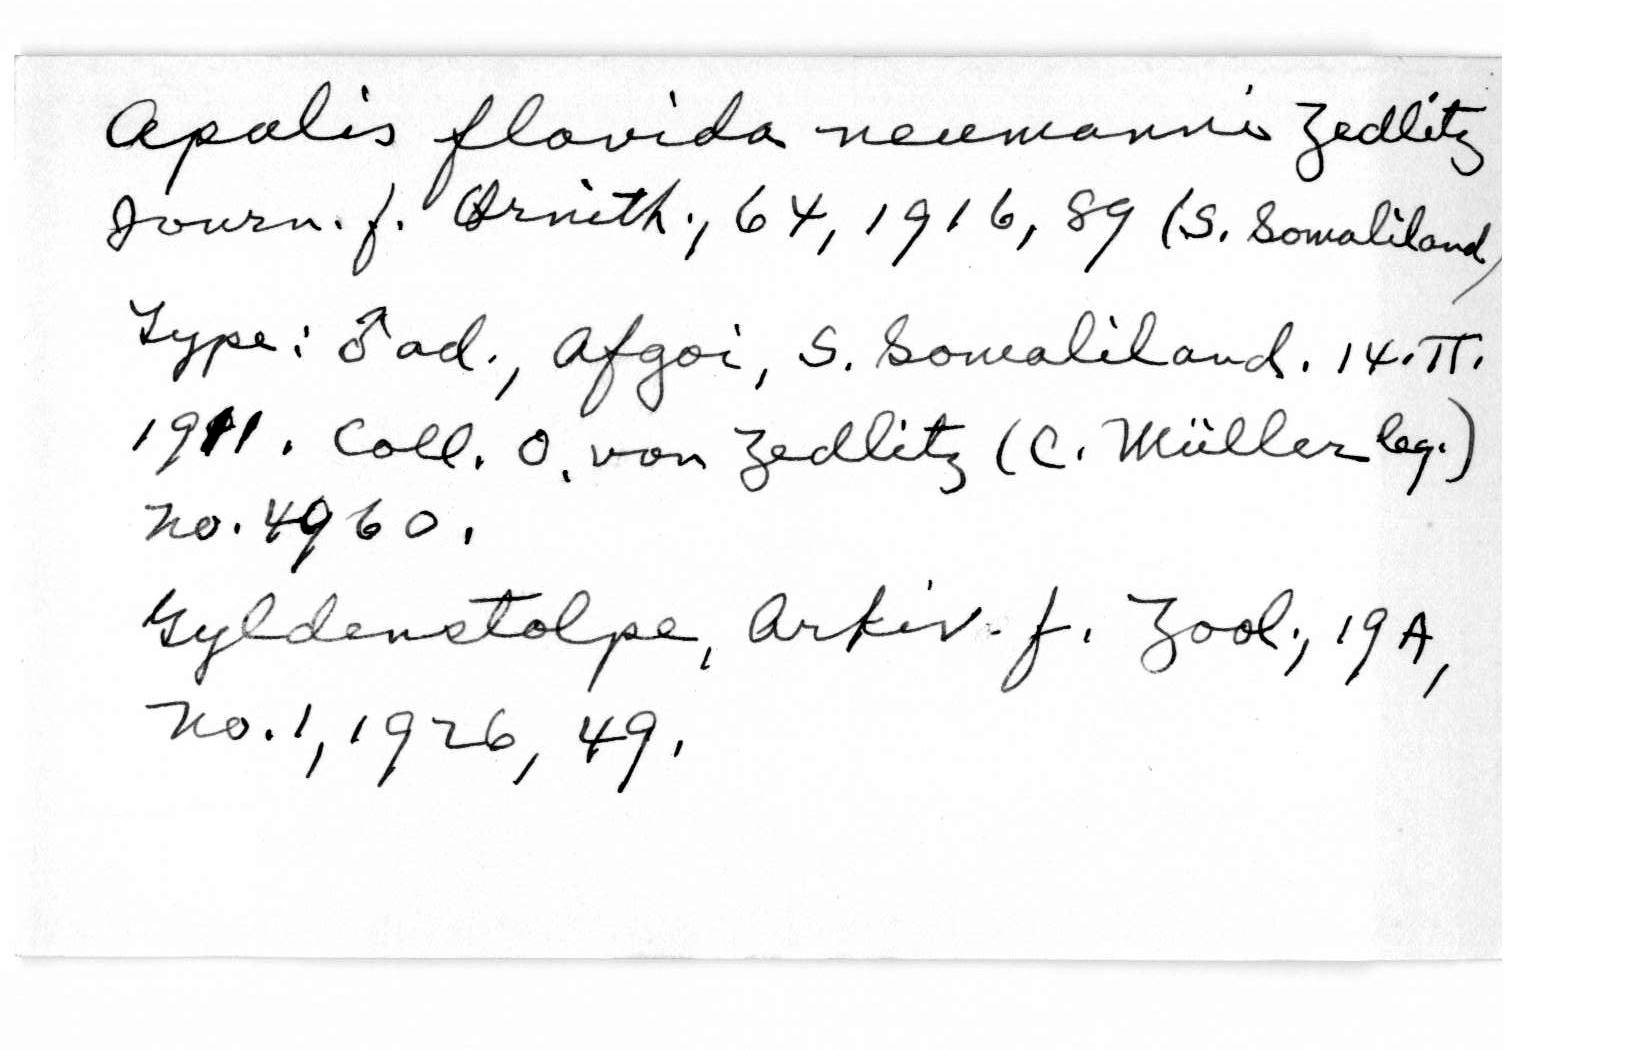 Apalis flavida neumanni Zedlitz
Journ. f. Ornith., 64, 1916, 89 (S. Somaliland)
Type: ♂ ad., Afgoi, S. Somaliland. 14.II.
1911. Coll. O. von Zedlitz (C. Müller leg.)
No. 4960.
Gyldenstolpe, Arkiv. f. Zool., 19A,
No. 1, 1926, 49.